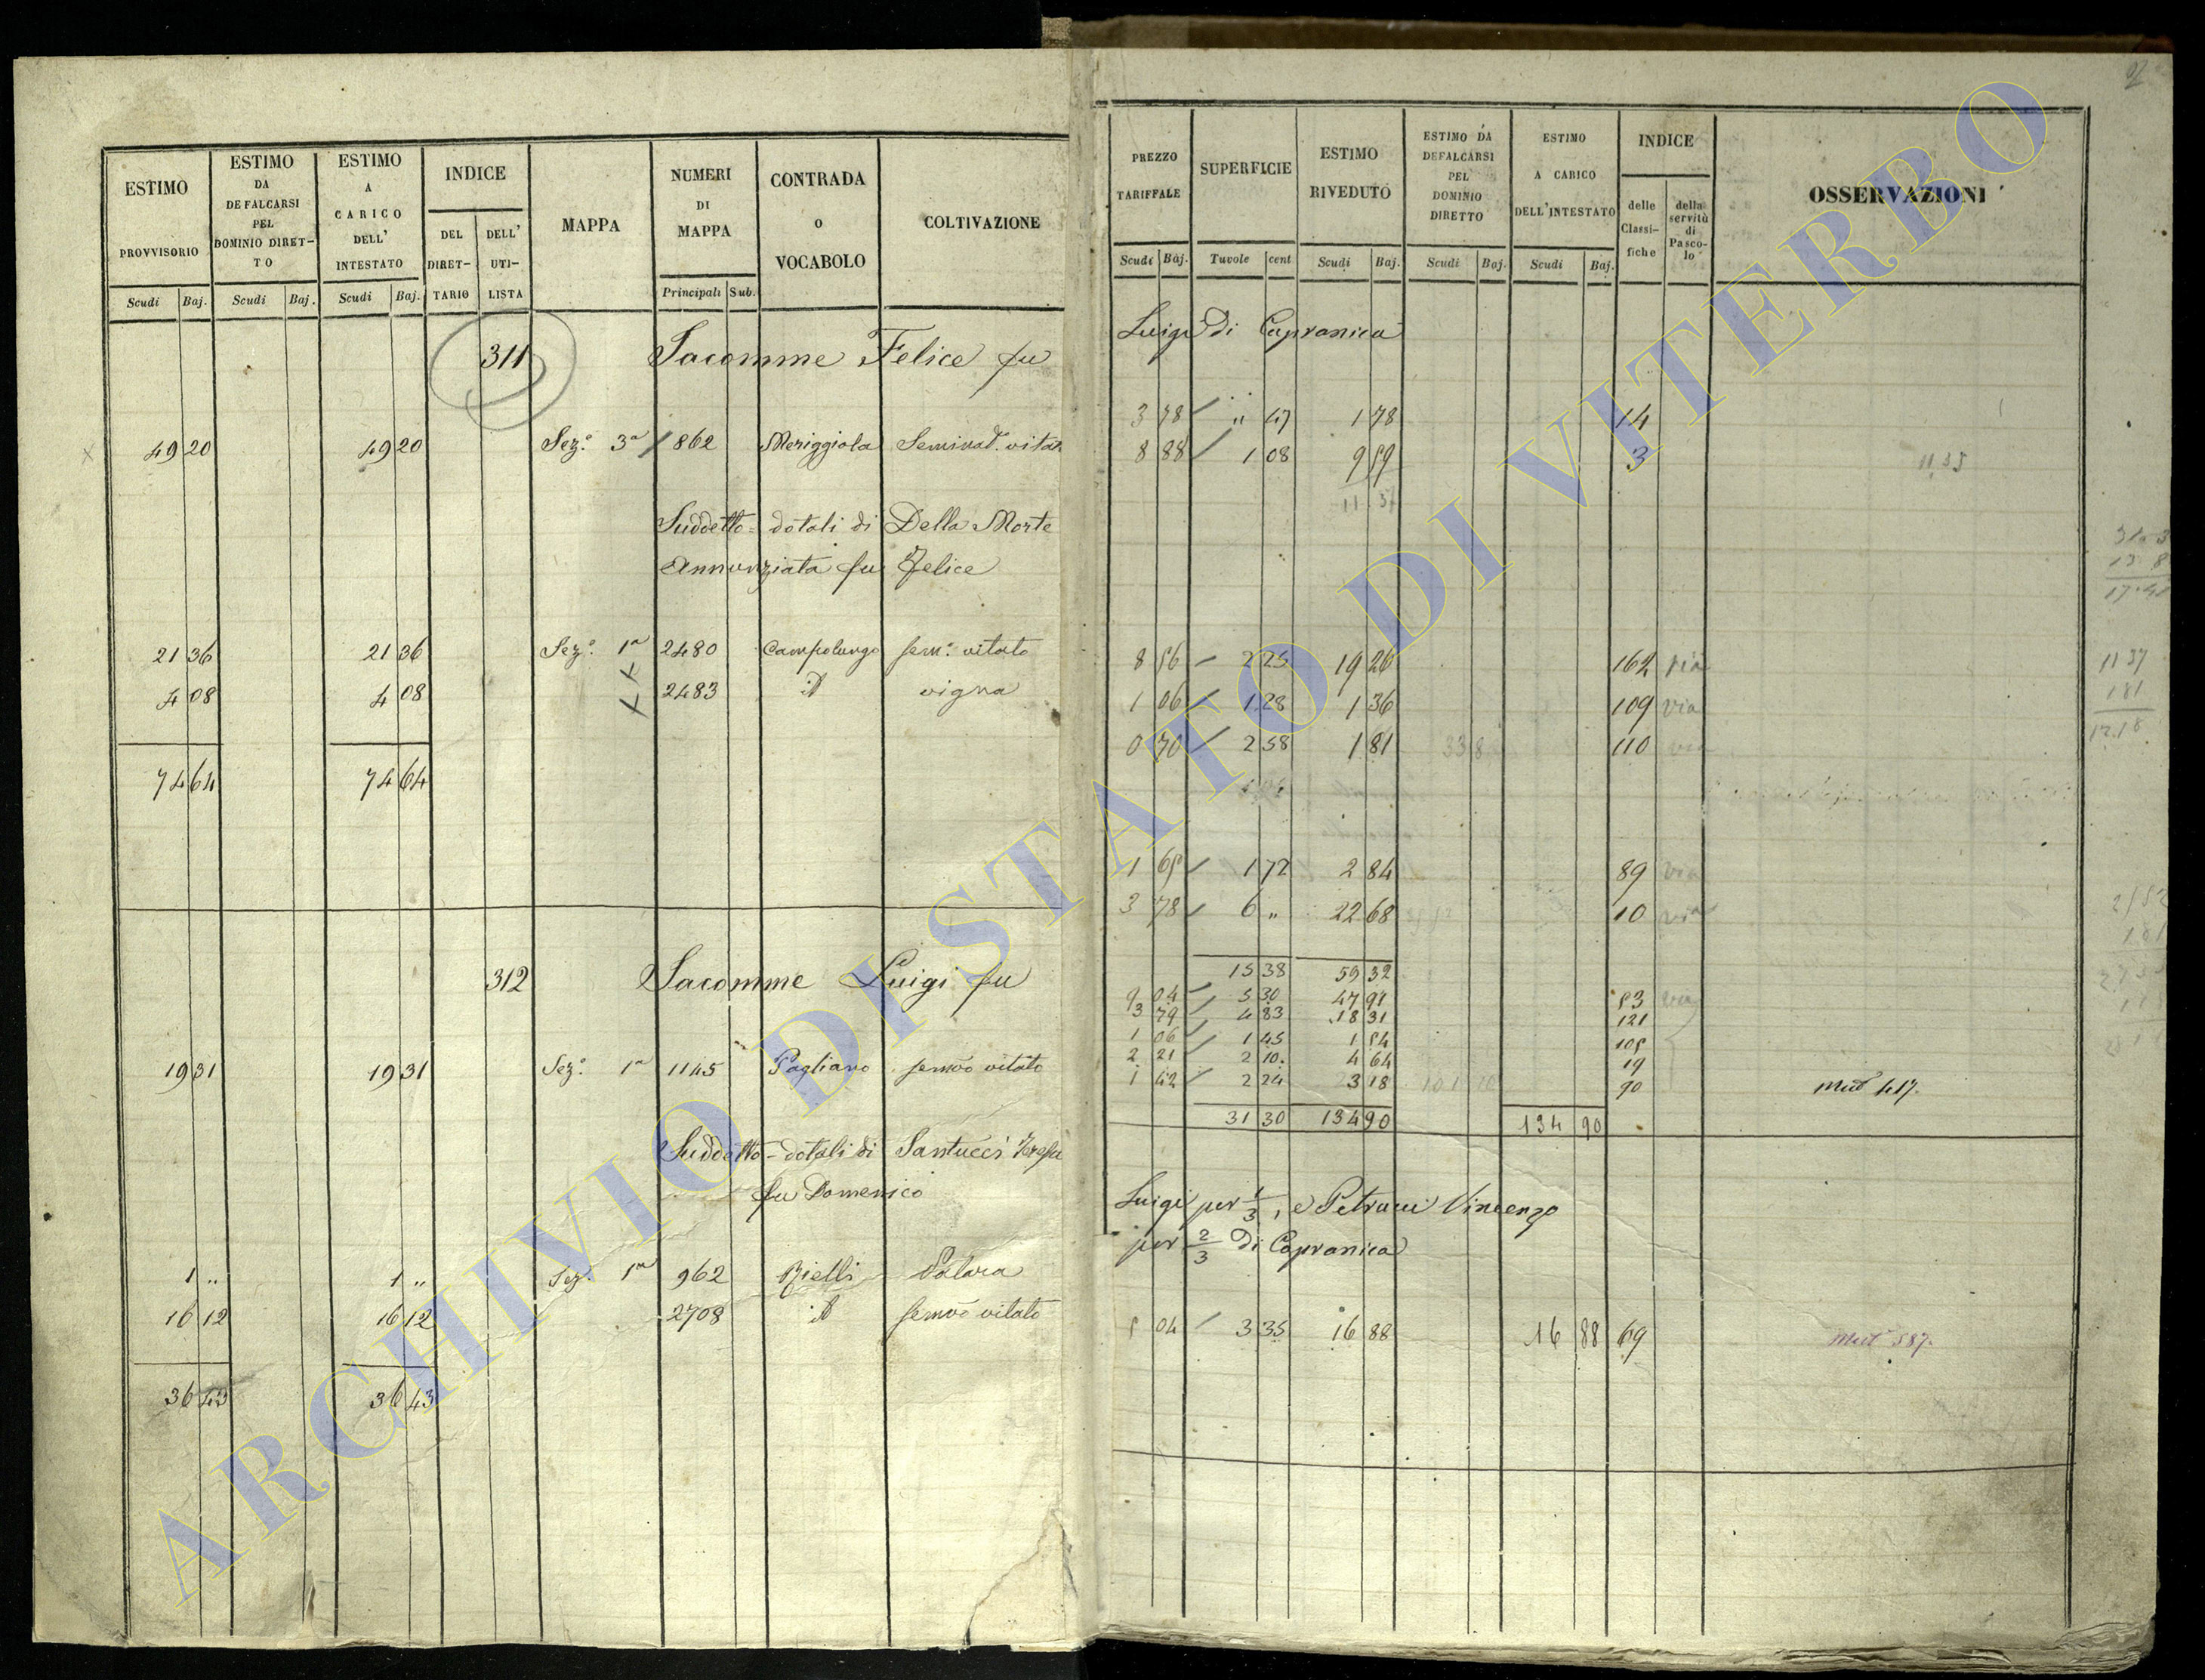 ESTIMO PROVVISORIO
ESTIMO DA DEFALCARSI PEL DOMINIO DIRET-TO
ESTIMO A CARICO DELL' INTESTATO
INDICE
DEL DIRET-TARIO
DELL' UTI-LISTA
MAPPA
NUMERI DI MAPPA
CONTRADA o VOCABOLO
COLTIVAZIONE
Scudi Baj. Scudi Baj. Scudi Baj. Principali Sub.
311 Sacomme Felice fu
49 20 49 20 Sez.e 3a 862 Meriggiola Seminat. vitat
Suddetto = dotali di Della Morte
Annunziata fu Felice
21 36 21 36 Sez.e 1a 2480 Campolungo sem.o vitato
4 08 4 08 2483 id vigna
74 64 74 64
312 Sacomme Luigi fu
19 31 19 31 Sez.e 1a 1145 Pogliano semvo vitato
Suddetto - dotali di Santucci Teresa
fu Domenico
1 „ 1 „ Sez. 1a 962 Rielli
16 12 16 12 2708 id semvo vitato
36 43 36 43
PREZZO TARIFFALE
SUPERFICIE
ESTIMO RIVEDUTO
ESTIMO DA DEFALCARSI PEL DOMINIO DIRETTO
ESTIMO A CARICO DELL'INTESTATO
INDICE
delle Classi-fiche
della servitù di Pasco-lo
OSSERVAZIONI
Scudi Baj. Tavole cent Scudi Baj. Scudi Baj. Scudi Baj.
Luigi di Capranica
3 78 „ 47 1 78 14
8 88 1 08 9 59 3
11 37
8 56 2 25 19 26 162 via
1 06 1 28 1 36 109 via
0 70 2 58 1 81 110 via
1 65 1 72 2 84 89 via
3 78 6 „ 22 68 10 via
15 38 59 32
9 04 5 30 47 91 53 via
3 79 4 83 18 31 121
1 06 1 45 1 54 105
2 21 2 10 4 64 19
1 42 2 24 3 18 90 Mut 417.
31 30 134 90 134 90
Luigi per 1/3, e Petrucci Vincenzo
per 2/3 di Capranica
5 04 3 35 16 88 16 88 69 Mut 587.
11 37
1 81
ARCHIVIO DI STATO DI VITERBO